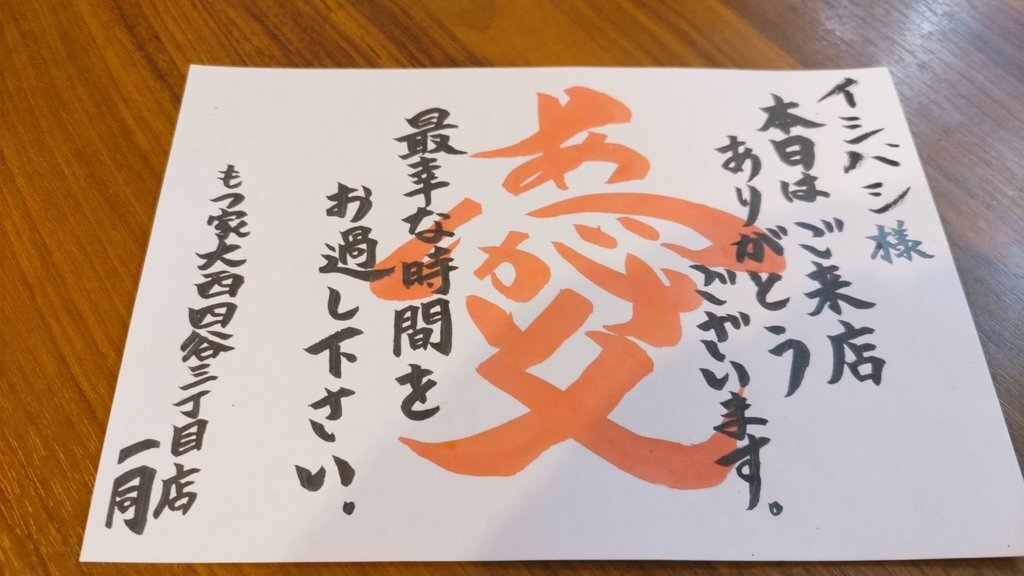 イシバシ様
本日はご来店
ありがとう
ございます。
最幸な時間を
お過し下さい.
もつ家大西四谷三丁目店
一同